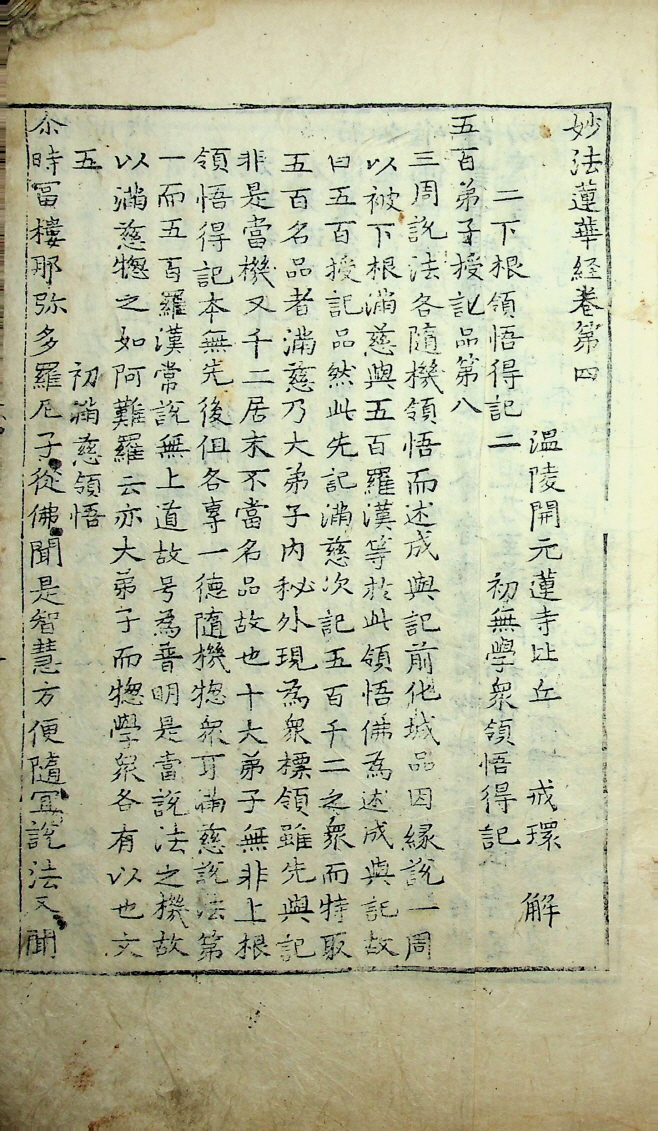 妙法蓮華経卷第四
温陵開元蓮寺比丘 戒環 解
二下根領悟得記二 初無學衆領悟得記
五百弟子授記品第八
三周說法各隨機領悟而述成與記前化城品因緣說一周
以被下根滿慈與五百羅漢等於此領悟佛為述成與記故
曰五百授記品然此先記滿慈次記五百千二之衆而特取
五百名品者滿慈乃大弟子內秘外現為衆標領雖先與記
非是當機又千二居末不當名品故也十大弟子無非上根
領悟得記本無先後但各專一德隨機惣衆耳滿慈說法第
一而五百羅漢常說無上道故号為普明是當說法之機故
以滿慈惣之如阿難羅云亦大弟子而惣學衆各有以也文
五 初滿慈領悟
尒時富樓那弥多羅尼子從佛聞是智慧方便隨冝說法又聞